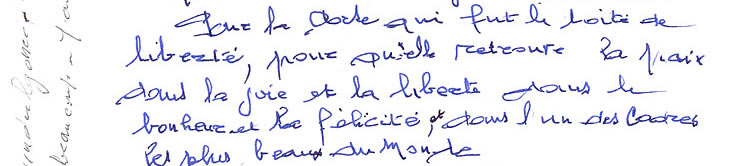 Pour la Corte qui fut le loité de
liberté, pour qu'elle retrouve la paix
dans la joie et la liberté dans le
bonheur et la félicité, et dans l'un des Cadres
les plus beaux du Monde
beaucoup